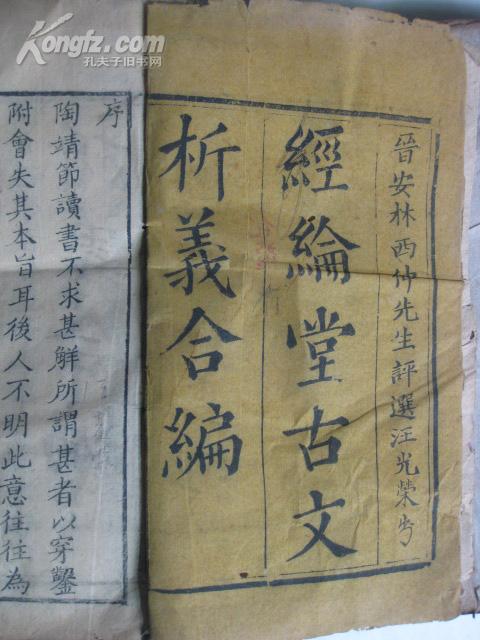 Kongfz.com
孔夫子旧书网
晉安林西仲先生評選汪光榮
經綸堂古文
析義合編
序
陶靖節讀書不求甚解所謂甚者以穿鑿
附會失其本旨耳後人不明此意往往為